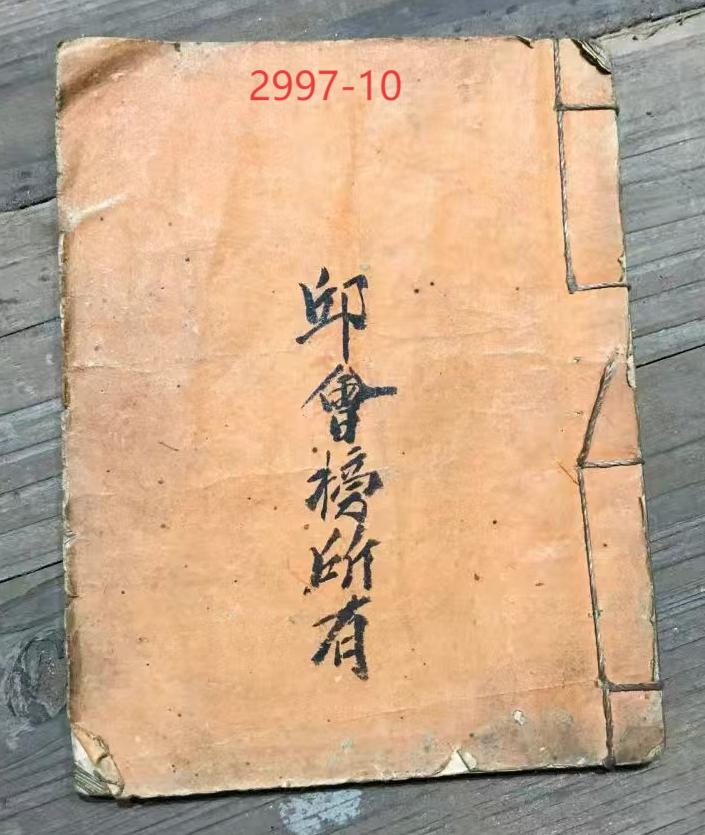 2997-10
邱會榜所有